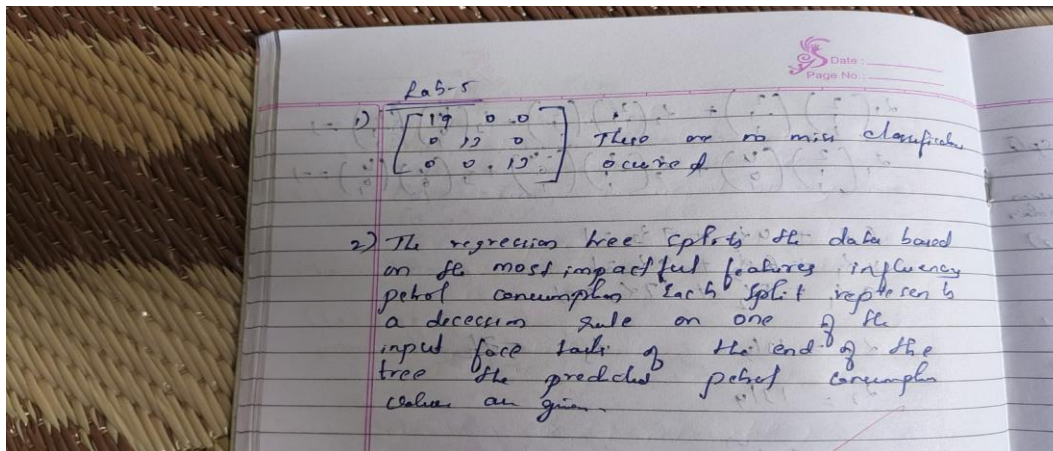 Date :
Page No. :
Lab-5
1) [19 0 0
0 13 0 There are no miss classification
0 0 13] occured
2) The regression tree splits the data based
on the most impactful features influency
petrol consumption Each split represents
a decession rule on one of the
input of the end of the
tree the predicted petrol consumption
values are given.